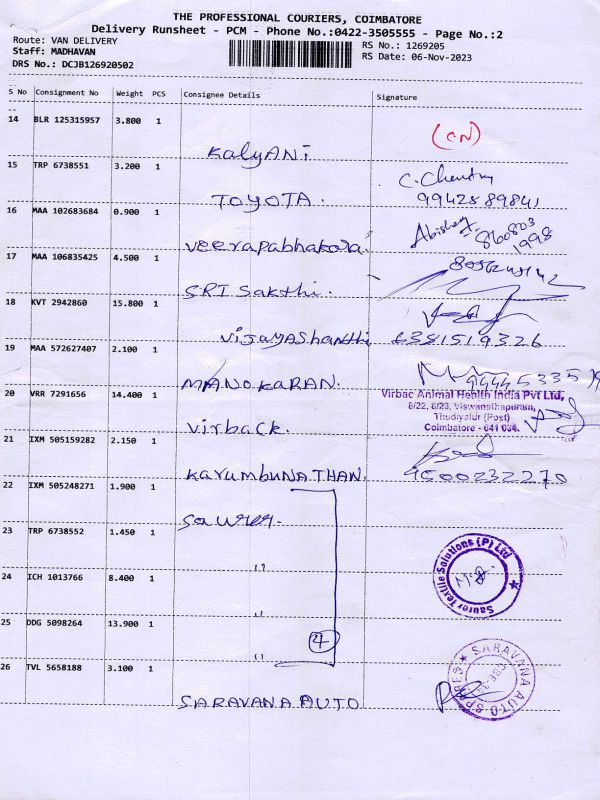 THE PROFESSIONAL COURIERS, COIMBATORE
Delivery Runsheet - PCM - Phone No.:0422-3505555 - Page No.:2
Route: VAN DELIVERY
Staff: MADHAVAN
DRS No.: DCJB126920502
RS No.: 1269205
RS Date: 06-Nov-2023
S No Consignment No Weight PCS Consignee Details Signature
14 BLR 125315957 3.800 1
KalyANi (CN)
15 TRP 6738551 3.200 1
TOYOTA. 9942589841
16 MAA 102683684 0.900 1
Veerapabhakara. Abishey 860803
1998
17 MAA 106835425 4.500 1
SRI Sakthi.
18 KVT 2942860 15.800 1
Vijayashanthi 6381519326
19 MAA 572627407 2.100 1
MANOKARAN.
20 VRR 7291656 14.400 1
Virback.
Virbac Animal Health India Pvt Ltd,
6/22, 6/23, Viswanathapuram,
Thudiyalur (Post)
Coimbatore - 641 034.
21 IXM 505159282 2.150 1
KarumbuNATHAN. 9500232270
22 IXM 505248271 1.900 1
Saurer.
23 TRP 6738552 1.450 1
"
24 ICH 1013766 8.400 1
"
25 DDG 5098264 13.900 1
" 4
Saurer Textile Solutions (P) Ltd
26 TVL 5658188 3.100 1
SARAVANA AUTO
SARAVANA AUTO SPARES